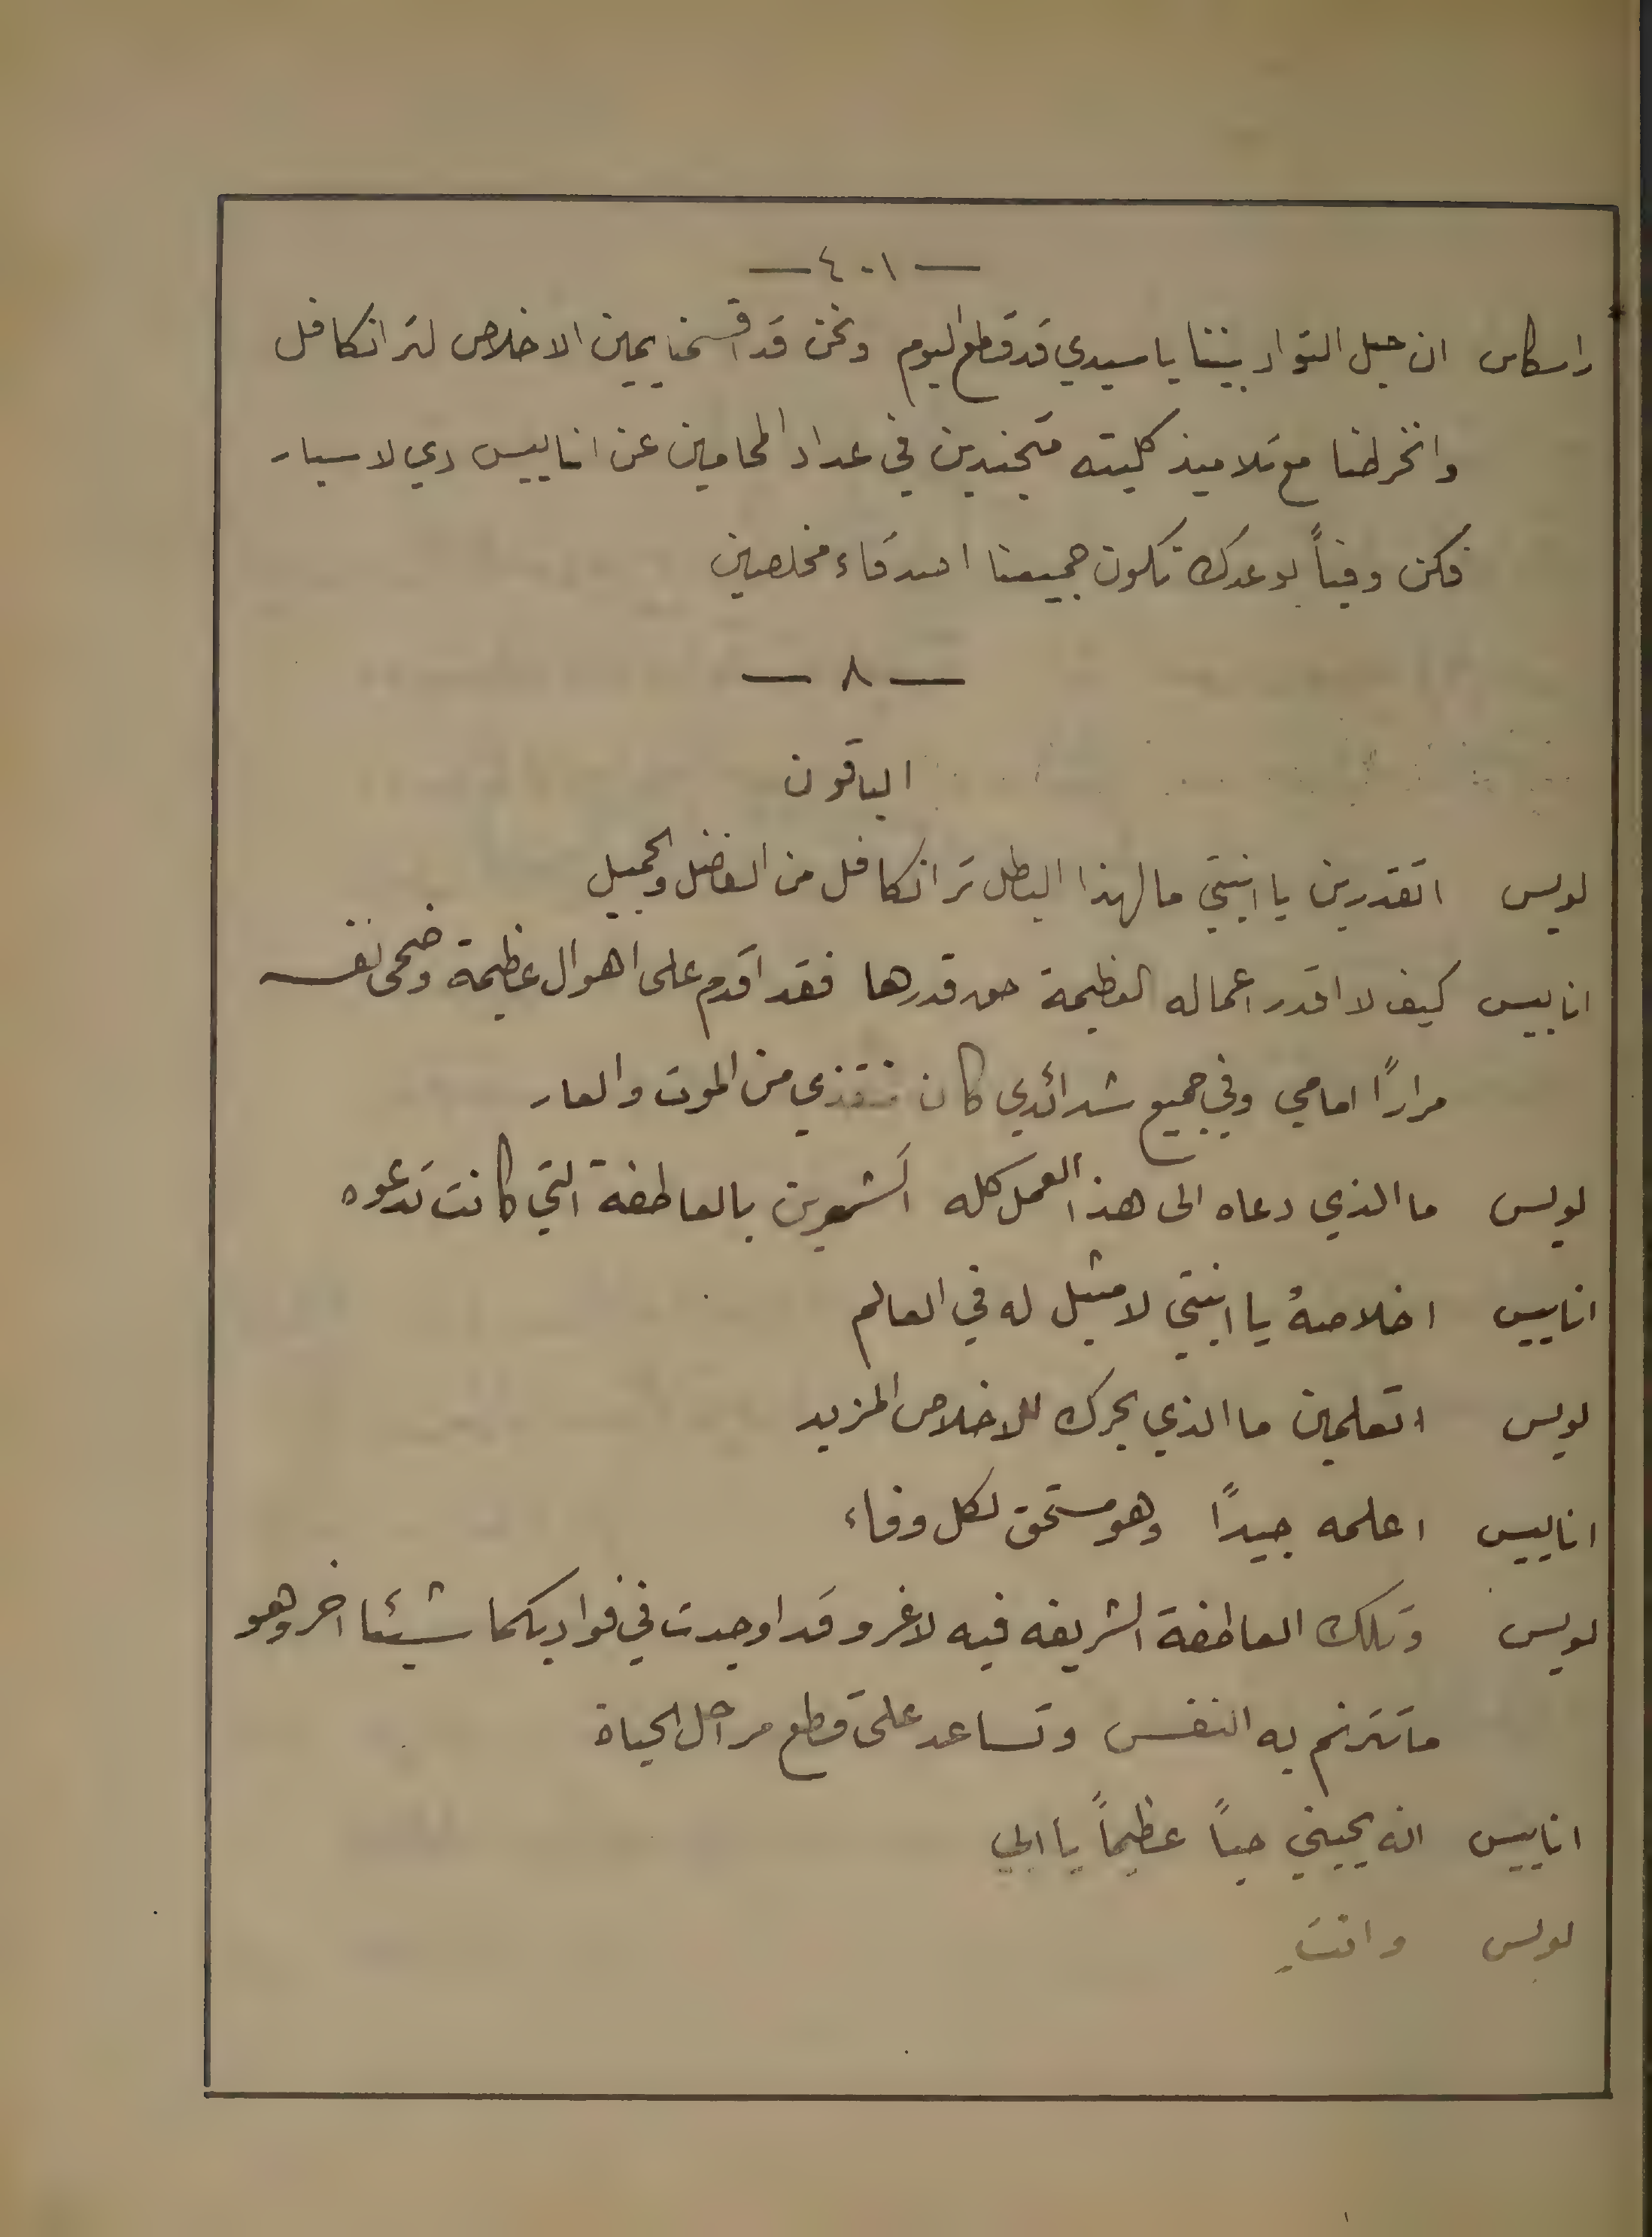 — ٤٠١ —
راسكاس ان حبل التواد بيننا يا سيدي قد قطع اليوم ونحن قد اقسمنا يمين الاخلاص لترانكافل
وانخرطنا مع تلاميذ كليته متجندين في عداد المحامين عن اناييس دي لاسبار
فكن وفياً بوعدك نكون جميعنا اصدقاء مخلصين
— ٨ —
الباقون
لويس اتقدرين يا ابنتي ما لهذا البطل ترانكافل من الفضل والجميل
اناييس كيف لا اقدر اعماله العظيمة حق قدرها فقد اقدم على اهوال عظيمة وضحى نفسه
مرارًا امامي وفي جميع شدائدي كان ينقذي من الموت والعار
لويس ما الذي دعاه الى هذا العمل كله اتشعرين بالعاطفة التي كانت تدعوه
اناييس اخلاصهُ يا ابتي لا مثيل له في العالم
لويس اتعلمين ما الذي يحرك للاخلاص المزيد
اناييس اعلمه جيدًا وهو مستحق لكل وفاء
لويس وتلك العاطفة الشريفه فيه لا غرو قد اوجدت في فواديكما شيئا اخر وهو
ما تترنم به النفس وتساعد على قطع مراحل الحياة
اناييس انه يحبني حباً عظيماً يا ابي
لويس وانتِ